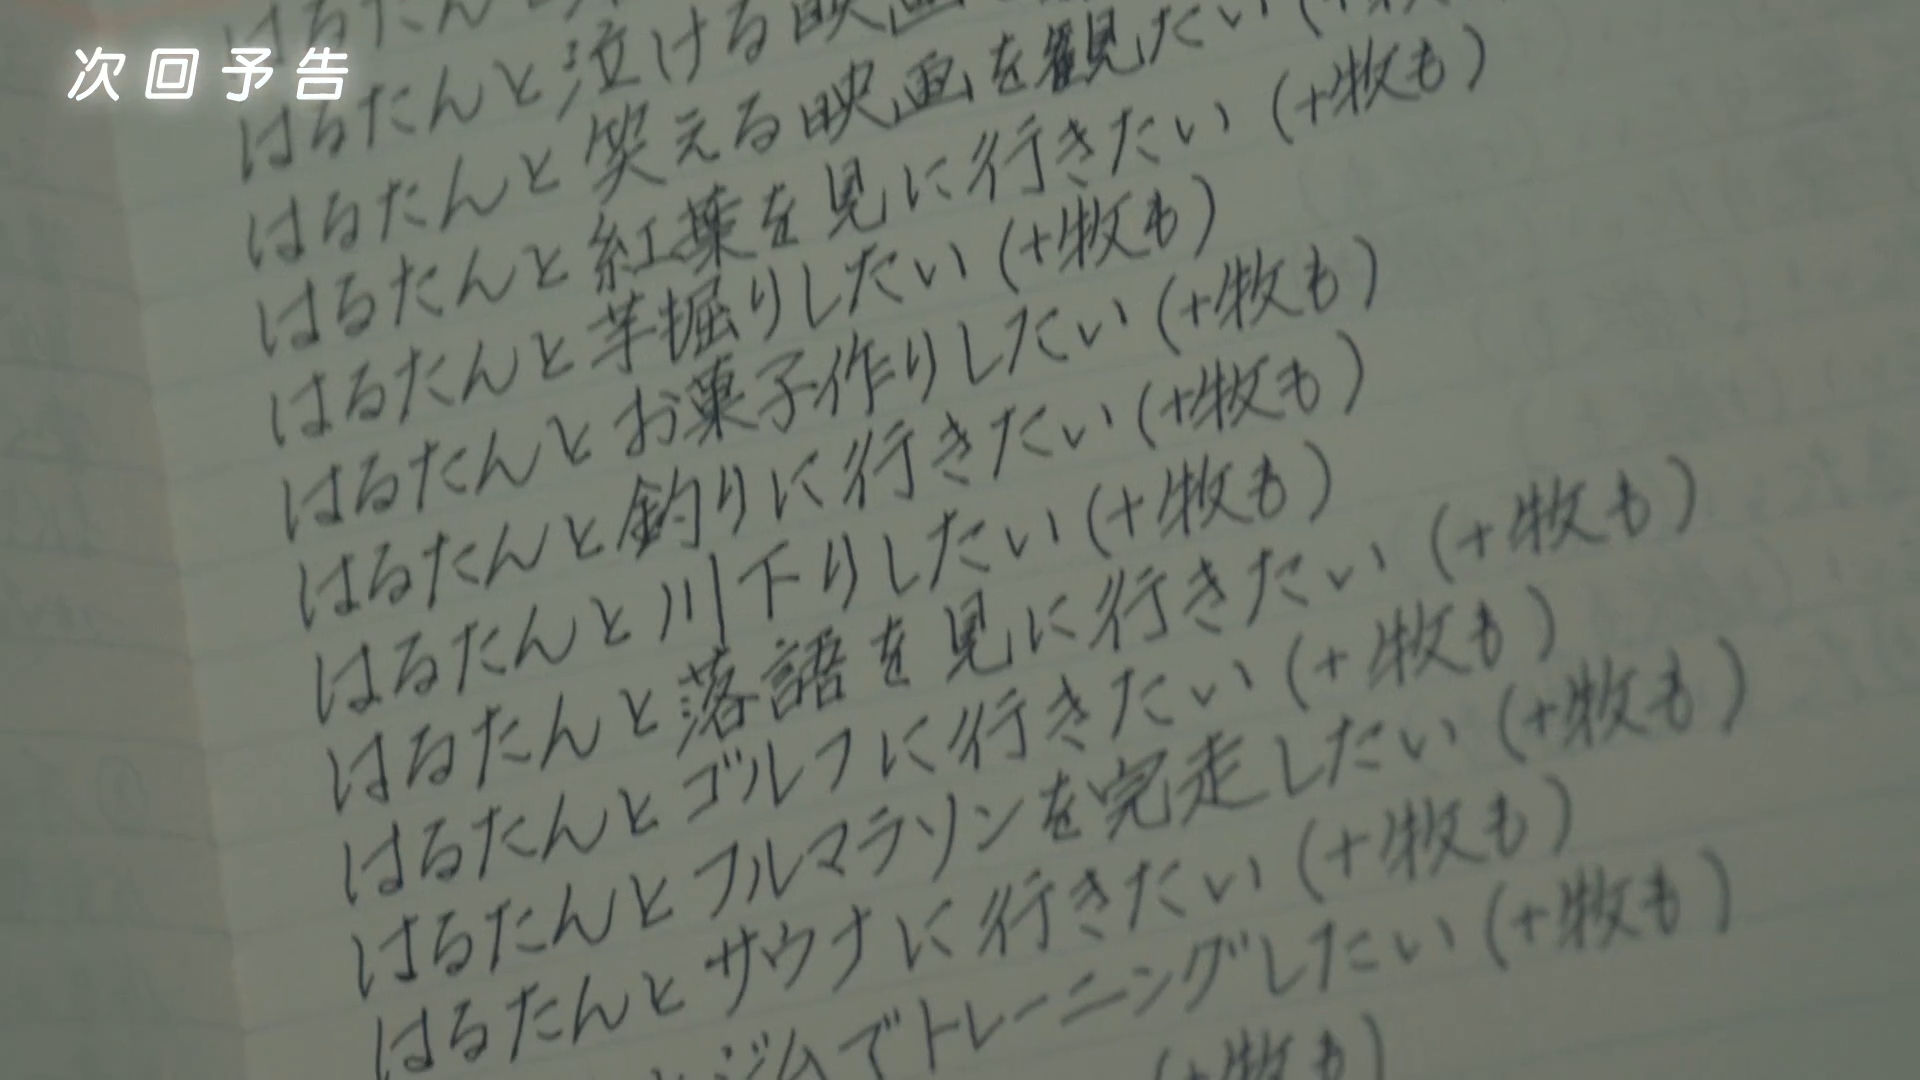 次回予告
はるたんと
はるたんと泣ける映画
はるたんと笑える映画を観たい(+牧
はるたんと紅葉を見に行きたい(+牧も)
はるたんと芋掘りしたい(+牧も)
はるたんとお菓子作りしたい(+牧も)
はるたんと釣りに行きたい(+牧も)
はるたんと川下りしたい(+牧も)
はるたんと落語を見に行きたい(+牧も)
はるたんとゴルフに行きたい(+牧も)
はるたんとフルマラソンを完走したい(+牧も)
はるたんとサウナに行きたい(+牧も)
とジムでトレーニングしたい(+牧も)
(+牧も)